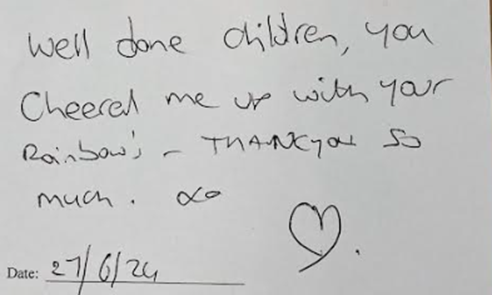 Well done children, you
Cheered me up with your
Rainbow's - THANKyou so
much. xo
Date: 27/6/24